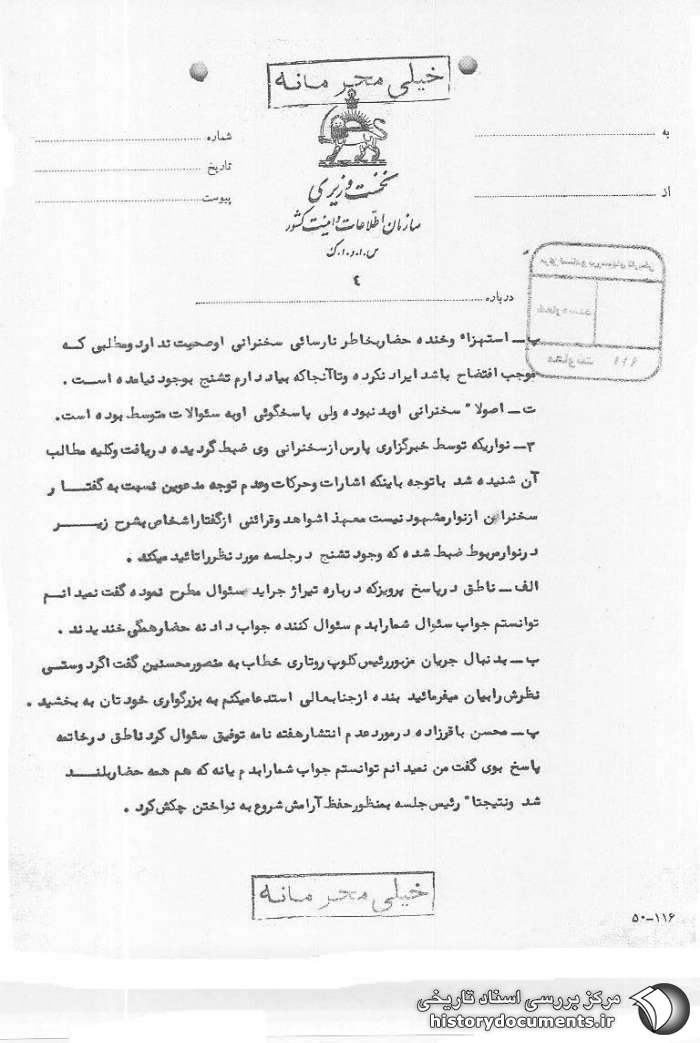 خیلی محرمانه
به
شماره
تاریخ
از
پیوست
نخست وزیری
سازمان اطلاعات و امنیت کشور
س.ا.و.ا.ک
۴
درباره
ب ـ استهزاء وخنده حضاربخاطر نارسائی سخنرانی اوصحیت ندارد ومطالبی که
موجب افتضاح باشد ایراد نکرده وتاآنجاکه بیاد دارم تشنج بوجود نیامده است .
ت ـ اصولا" سخنرانی اوبد نبوده ولی پاسخگوئی اوبه سئوالات متوسط بوده است.
۳ـ نواریکه توسط خبرگزاری پارس ازسخنرانی وی ضبط گردیده دریافت وکلیه مطالب
آن شنیده شد باتوجه باینکه اشارات وحرکات وعدم توجه مدعوین نسبت به گفتار
سخنران ازنوارمشهود نیست معهذا شواهد وقرائنی ازگفتاراشخاص بشرح زیر
درنوارمربوط ضبط شده که وجود تشنج درجلسه مورد نظرراتائید میکند .
الف ـ ناطق درپاسخ پرویزکه درباره تیراژ جراید سئوال مطرح نموده گفت نمیدانم
توانستم جواب سئوال شمارابدم سئوال کننده جواب داد نه حضارهمگی خندیدند .
ب ـ بدنبال جریان مزبوررئیس کلوپ روتاری خطاب به منصورمحسنین گفت اگردوستی
نظرش رابیان میفرمائید بنده ازجنابعالی استدعامیکنم به بزرگواری خودتان به بخشید .
پ ـ محسن باقرزاده درمورد عدم انتشارهفته نامه توفیق سئوال کرد ناطق درخاتمه
پاسخ بوی گفت من نمیدانم توانستم جواب شمارابدم یانه که هم همه حضاربلند
شد ونتیجتا" رئیس جلسه بمنظورحفظ آرامش شروع به نواختن چکش کرد .
خیلی محرمانه
۵۰-۱۱۶
مرکز بررسی اسناد تاریخی
historydocuments.ir